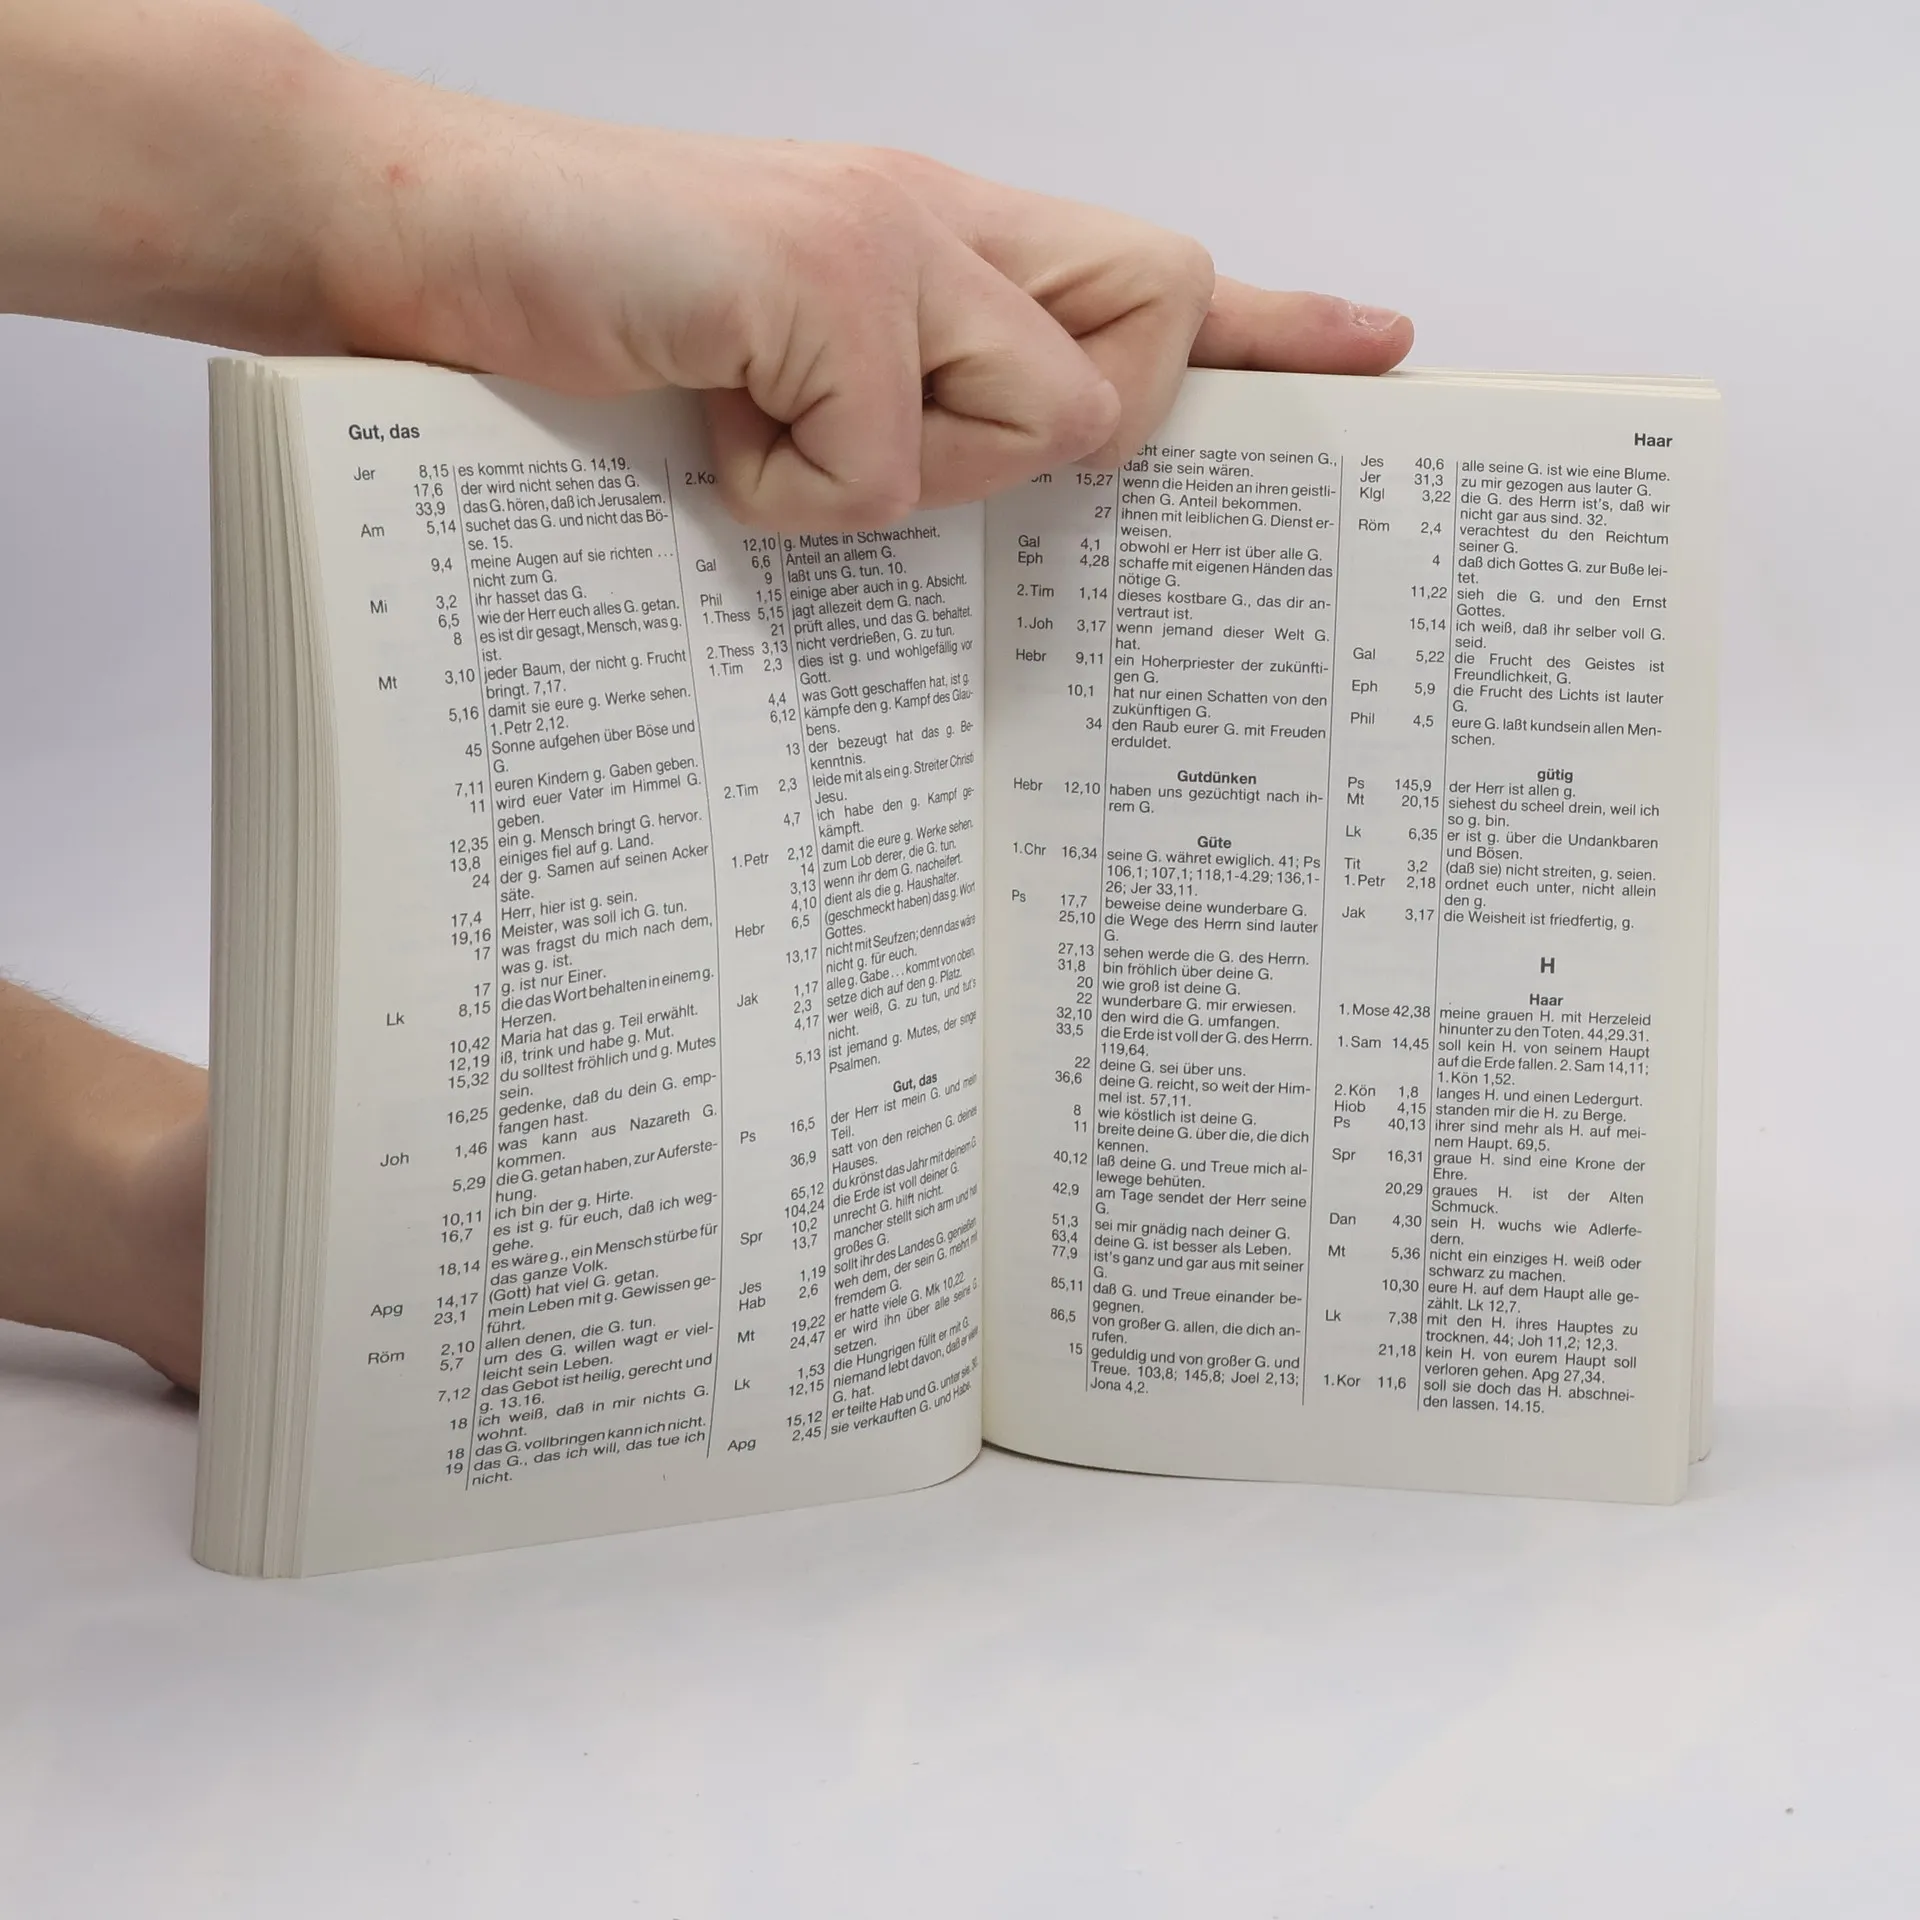 Gut, das
Jer 8,15 es kommt nichts G. 14,19.
17,6 der wird nicht sehen das G.
33,9 das G. hören, daß ich Jerusalem.
Am 5,14 suchet das G. und nicht das Bö-
se. 15.
9,4 meine Augen auf sie richten ...
nicht zum G.
Mi 3,2 ihr hasset das G.
6,5 wie der Herr euch alles G. getan.
8 es ist dir gesagt, Mensch, was g.
ist.
Mt 3,10 jeder Baum, der nicht g. Frucht
bringt. 7,17.
5,16 damit sie eure g. Werke sehen.
1. Petr 2,12.
45 Sonne aufgehen über Böse und
G.
7,11 euren Kindern g. Gaben geben.
11 wird euer Vater im Himmel G.
geben.
12,35 ein g. Mensch bringt G. hervor.
13,8 einiges fiel auf g. Land.
24 der g. Samen auf seinen Acker
säte.
17,4 Herr, hier ist g. sein.
19,16 Meister, was soll ich G. tun.
17 was fragst du mich nach dem,
was g. ist.
17 g. ist nur Einer.
Lk 8,15 die das Wort behalten in einem g.
Herzen.
10,42 Maria hat das g. Teil erwählt.
12,19 iß, trink und habe g. Mut.
15,32 du solltest fröhlich und g. Mutes
sein.
16,25 gedenke, daß du dein G. emp-
fangen hast.
Joh 1,46 was kann aus Nazareth G.
kommen.
5,29 die G. getan haben, zur Auferste-
hung.
10,11 ich bin der g. Hirte.
16,7 es ist g. für euch, daß ich weg-
gehe.
18,14 es wäre g., ein Mensch stürbe für
das ganze Volk.
Apg 14,17 (Gott) hat viel G. getan.
23,1 mein Leben mit g. Gewissen ge-
führt.
Röm 2,10 allen denen, die G. tun.
5,7 um des G. willen wagt er viel-
leicht sein Leben.
7,12 das Gebot ist heilig, gerecht und
g. 13.16.
18 ich weiß, daß in mir nichts G.
wohnt.
18 das G. vollbringen kann ich nicht.
19 das G., das ich will, das tue ich
nicht.
2.Ko
12,10 g. Mutes in Schwachheit.
Gal 6,6 Anteil an allem G.
9 laßt uns G. tun. 10.
Phil 1,15 einige aber auch in g. Absicht.
1.Thess 5,15 jagt allezeit dem G. nach.
21 prüft alles, und das G. behaltet.
2.Thess 3,13 nicht verdrießen, G. zu tun.
1.Tim 2,3 dies ist g. und wohlgefällig vor
Gott.
4,4 was Gott geschaffen hat, ist g.
6,12 kämpfe den g. Kampf des Glau-
bens.
13 der bezeugt hat das g. Be-
kenntnis.
2.Tim 2,3 leide mit als ein g. Streiter Christi
Jesu.
4,7 ich habe den g. Kampf ge-
kämpft.
1.Petr 2,12 damit die eure g. Werke sehen.
14 zum Lob derer, die G. tun.
3,13 wenn ihr dem G. nacheifert.
4,10 dient als die g. Haushalter.
Hebr 6,5 (geschmeckt haben) das g. Wort
Gottes.
13,17 nicht mit Seufzen; denn das wäre
nicht g. für euch.
Jak 1,17 alle g. Gabe ... kommt von oben.
2,3 setze dich auf den g. Platz.
4,17 wer weiß, G. zu tun, und tut's
nicht.
5,13 ist jemand g. Mutes, der singe
Psalmen.
Gut, das
Ps 16,5 der Herr ist mein G. und mein
Teil.
36,9 satt von den reichen G. deines
Hauses.
65,12 du krönst das Jahr mit deinem G.
104,24 die Erde ist voll deiner G.
Spr 10,2 unrecht G. hilft nicht.
13,7 mancher stellt sich arm und hat
großes G.
Jes 1,19 sollt ihr des Landes G. genießen
Hab 2,6 weh dem, der sein G. mehrt mit
fremdem G.
Mt 19,22 er hatte viele G. Mk 10,22.
24,47 er wird ihn über alle seine G.
setzen.
Lk 1,53 die Hungrigen füllt er mit G.
12,15 niemand lebt davon, daß er viele
G. hat.
15,12 er teilte Hab und G. unter sie. 30.
Apg 2,45 sie verkauften G. und Habe.
Haar
einer sagte von seinen G.,
daß sie sein wären.
15,27 wenn die Heiden an ihren geistli-
chen G. Anteil bekommen.
27 ihnen mit leiblichen G. Dienst er-
weisen.
Gal 4,1 obwohl er Herr ist über alle G.
Eph 4,28 schaffe mit eigenen Händen das
nötige G.
2.Tim 1,14 dieses kostbare G., das dir an-
vertraut ist.
1.Joh 3,17 wenn jemand dieser Welt G.
hat.
Hebr 9,11 ein Hoherpriester der zukünfti-
gen G.
10,1 hat nur einen Schatten von den
zukünftigen G.
34 den Raub eurer G. mit Freuden
erduldet.
Gutdünken
Hebr 12,10 haben uns gezüchtigt nach ih-
rem G.
Güte
1.Chr 16,34 seine G. währet ewiglich. 41; Ps
106,1; 107,1; 118,1-4.29; 136,1-
26; Jer 33,11.
Ps 17,7 beweise deine wunderbare G.
25,10 die Wege des Herrn sind lauter
G.
27,13 sehen werde die G. des Herrn.
31,8 bin fröhlich über deine G.
20 wie groß ist deine G.
22 wunderbare G. mir erwiesen.
32,10 den wird die G. umfangen.
33,5 die Erde ist voll der G. des Herrn.
119,64.
22 deine G. sei über uns.
36,6 deine G. reicht, so weit der Him-
mel ist. 57,11.
8 wie köstlich ist deine G.
11 breite deine G. über die, die dich
kennen.
40,12 laß deine G. und Treue mich al-
lewege behüten.
42,9 am Tage sendet der Herr seine
G.
51,3 sei mir gnädig nach deiner G.
63,4 deine G. ist besser als Leben.
77,9 ist's ganz und gar aus mit seiner
G.
85,11 daß G. und Treue einander be-
gegnen.
86,5 von großer G. allen, die dich an-
rufen.
15 geduldig und von großer G. und
Treue. 103,8; 145,8; Joel 2,13;
Jona 4,2.
Jes 40,6 alle seine G. ist wie eine Blume.
Jer 31,3 zu mir gezogen aus lauter G.
Klgl 3,22 die G. des Herrn ist's, daß wir
nicht gar aus sind. 32.
Röm 2,4 verachtest du den Reichtum
seiner G.
4 daß dich Gottes G. zur Buße lei-
tet.
11,22 sieh die G. und den Ernst
Gottes.
15,14 ich weiß, daß ihr selber voll G.
seid.
Gal 5,22 die Frucht des Geistes ist
Freundlichkeit, G.
Eph 5,9 die Frucht des Lichts ist lauter
G.
Phil 4,5 eure G. laßt kundsein allen Men-
schen.
gütig
Ps 145,9 der Herr ist allen g.
Mt 20,15 siehest du scheel drein, weil ich
so g. bin.
Lk 6,35 er ist g. über die Undankbaren
und Bösen.
Tit 3,2 (daß sie) nicht streiten, g. seien.
1.Petr 2,18 ordnet euch unter, nicht allein
den g.
Jak 3,17 die Weisheit ist friedfertig, g.
H
Haar
1.Mose 42,38 meine grauen H. mit Herzeleid
hinunter zu den Toten. 44,29.31.
1.Sam 14,45 soll kein H. von seinem Haupt
auf die Erde fallen. 2. Sam 14,11;
1. Kön 1,52.
2.Kön 1,8 langes H. und einen Ledergurt.
Hiob 4,15 standen mir die H. zu Berge.
Ps 40,13 ihrer sind mehr als H. auf mei-
nem Haupt. 69,5.
Spr 16,31 graue H. sind eine Krone der
Ehre.
20,29 graues H. ist der Alten
Schmuck.
Dan 4,30 sein H. wuchs wie Adlerfe-
dern.
Mt 5,36 nicht ein einziges H. weiß oder
schwarz zu machen.
10,30 eure H. auf dem Haupt alle ge-
zählt. Lk 12,7.
Lk 7,38 mit den H. ihres Hauptes zu
trocknen. 44; Joh 11,2; 12,3.
21,18 kein H. von eurem Haupt soll
verloren gehen. Apg 27,34.
1.Kor 11,6 soll sie doch das H. abschnei-
den lassen. 14.15.